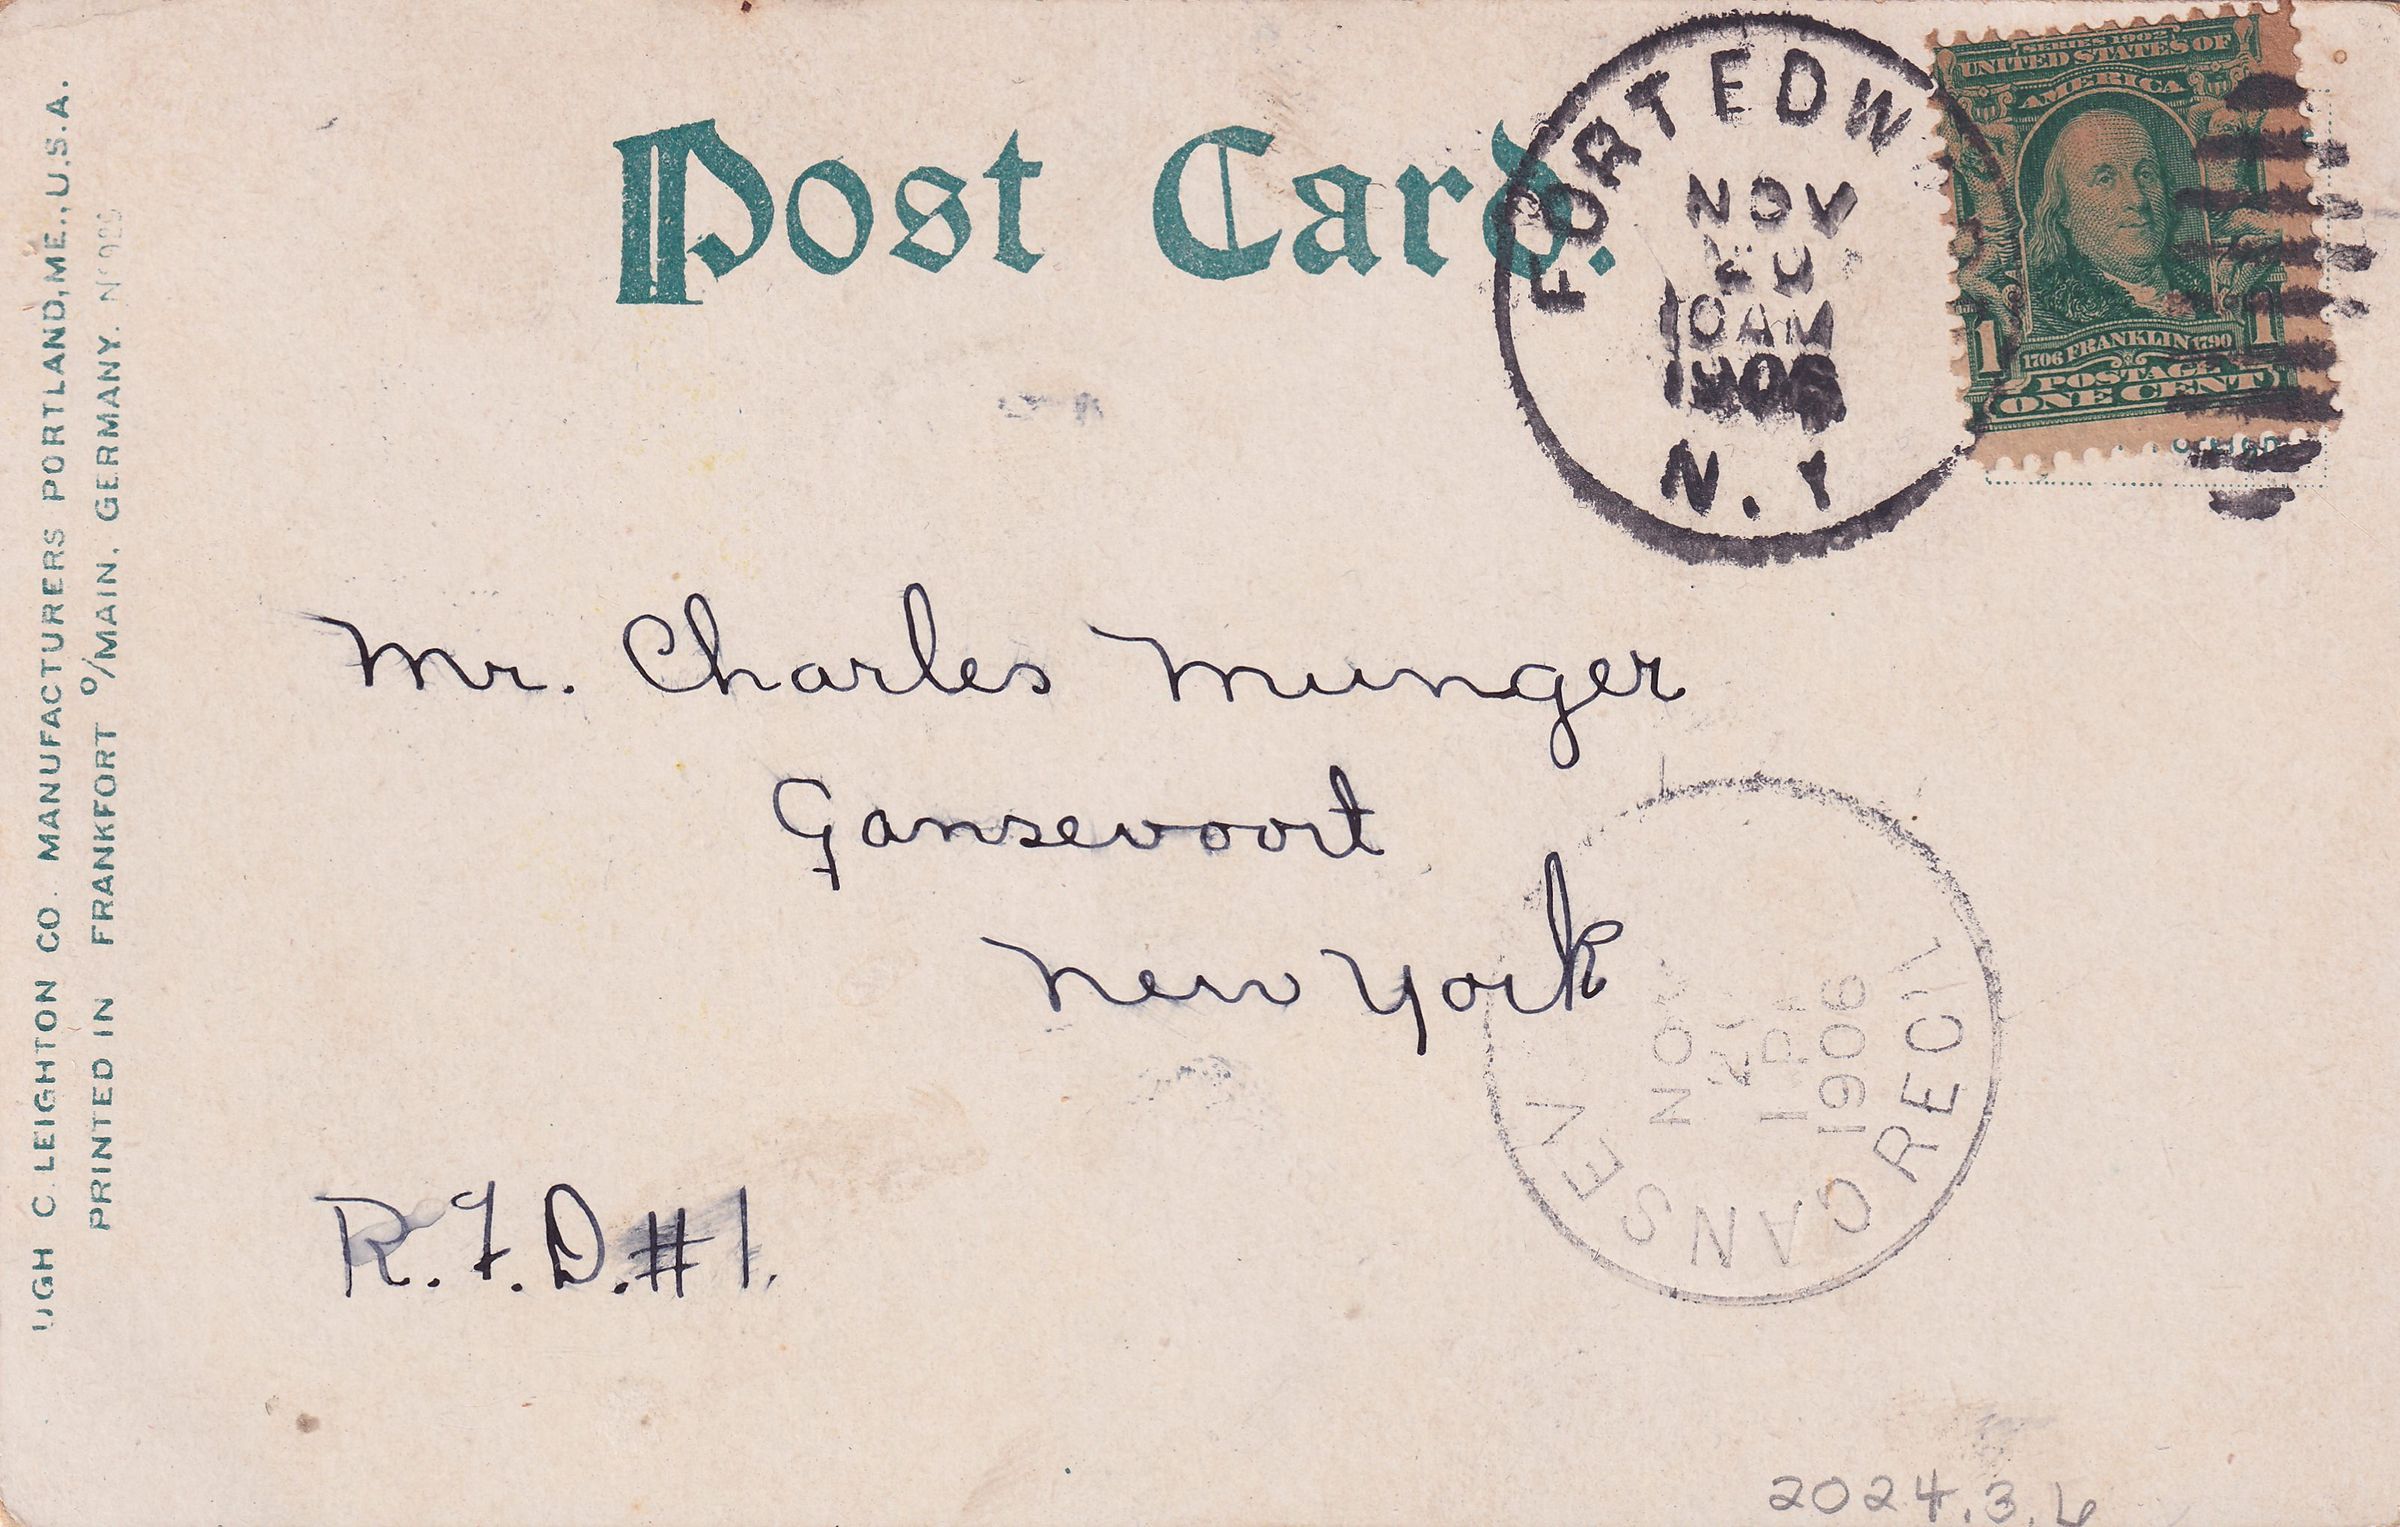 Post Card.
FORT EDW
NOV
10 AM
1906
N.Y
SERIES 1902
UNITED STATES OF
AMERICA
1706 FRANKLIN 1790
1 1
POSTAGE
ONE CENT
Mr. Charles Munger
Gansevoort
New York
R.F.D. #1.
GANSEV
REC'
NOV
1906
UGH C. LEIGHTON CO. MANUFACTURERS PORTLAND, ME., U.S.A.
PRINTED IN FRANKFORT o/MAIN, GERMANY.
2024.3.6